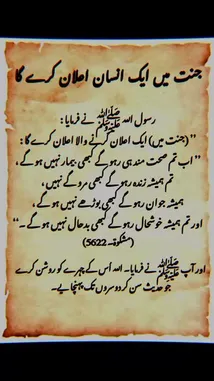 جنت میں ایک انسان اعلان کرے گا
رسول اللہ ﷺ نے فرمایا :
”(جنت میں) ایک اعلان کرنے والا اعلان کرے گا :
”اب تم صحت مند ہی رہو گے کبھی بیمار نہیں ہو گے،
تم ہمیشہ زندہ رہو گے کبھی مرو گے نہیں،
ہمیشہ جوان رہو گے کبھی بوڑھے نہیں ہو گے،
اور تم ہمیشہ خوشحال رہو گے کبھی بدحال نہیں ہو گے۔“
(مشکوٰۃ-5622)
اور آپ ﷺ نے فرمایا۔ اللہ اُس کے چہرے کو روشن کرے
جو حدیث سن کر دوسروں تک پہنچائیے۔